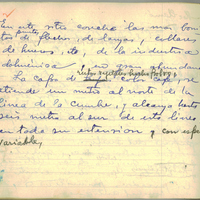 En este, sitio concha las más bon
tas de flechas, de lanzas, collares
de huesos, etc, de la industria
en gran abundan
La capa de color café, se
extiende un metro al norte de la
línea de la cumbre, y alcanza hasta
seis metro al sur de esta línea
en toda su extension, y con espe
variable,